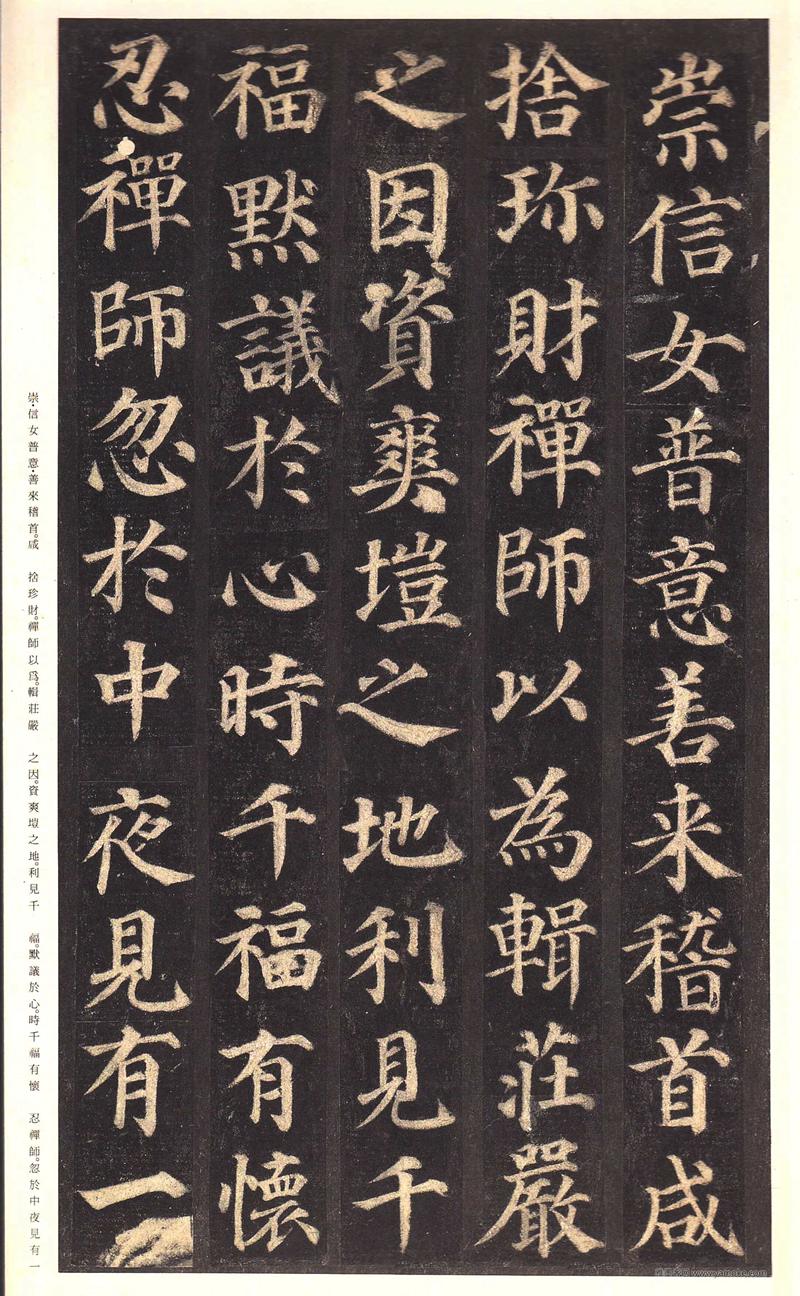 崇信女普意善来稽首咸
捨珎財禪師以為輯莊嚴
之因資爽塏之地利見千
福默議於心時千福有懷
忍禪師忽於中夜見有一
崇・信女普意・善來稽首。咸　捨珍財。禪師以爲。輯莊嚴　之因。資爽塏之地。利見千　福。默議於心。時千福有懷　忍禪師。忽於中夜見有一
www.yamoke.com